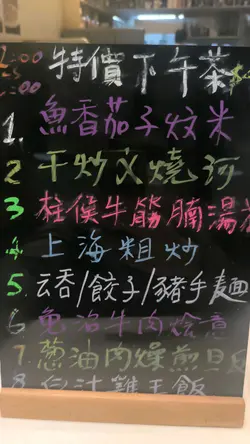 2:00 特價下午茶
5:00
1. 魚香茄子炆米
2 干炒义燒河
3 柱侯牛筋腩湯
4 上海粗炒
5. 云吞/餃子/豬手麵
6 免治牛肉燴意
7. 葱油肉燥煎旦
8. 白汁雞王飯